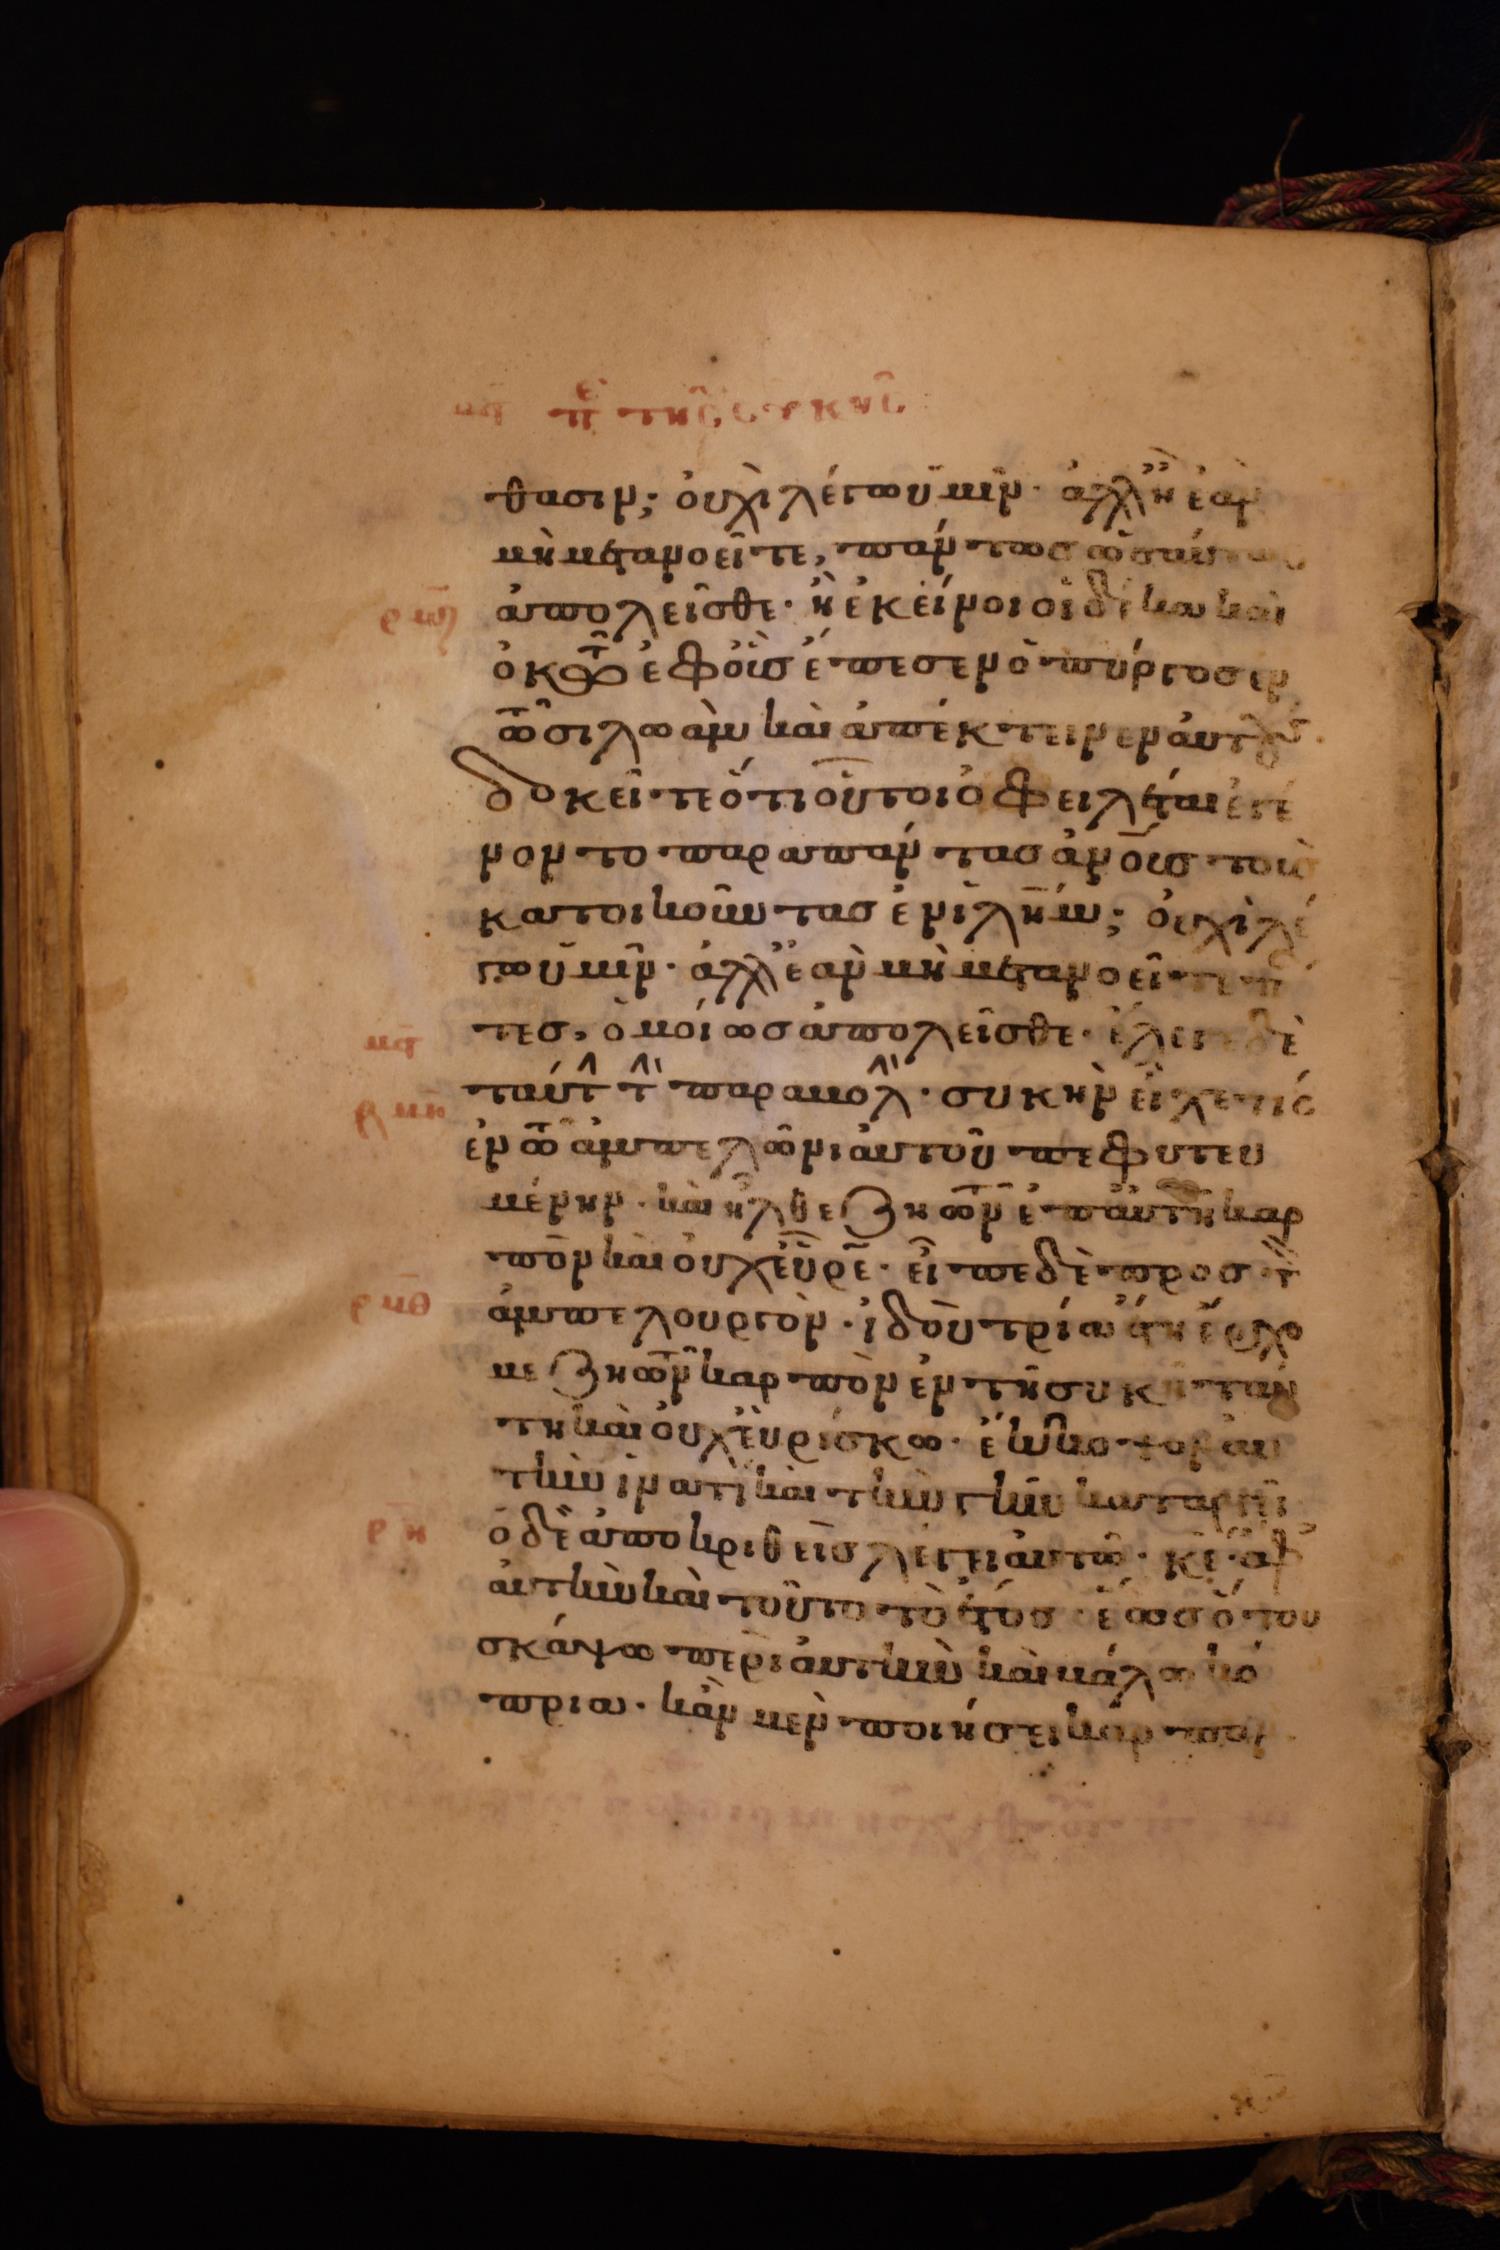 θασιν; ουχὶ λέγω ὑμῖν· ἀλλ' ἢ ἐὰν
μὴ μετανοεῖτε, πάντως ὡσαύτως
ἀπολεῖσθε· ἢ ἐκεῖνοι οἱ δέκα καὶ
ὀκτὼ ἐφ' οὓς ἔπεσεν ὁ πύργος ἐν
τῶ σιλωὰμ καὶ ἀπέκτεινεν αὐτούς·
δοκεῖτε ὅτι οὗτοι ὀφειλέται ἐγέ
νοντο παρὰ πάντας ἀνους τοὺς
κατοικοῦντας ἐν ἰλημ; ουχὶ λέ
γω ὑμῖν· ἀλλ' ἐὰν μὴ μετανοεῖτε
τες, ὁμοίως ἀπολεῖσθε· ἔλεγε δὲ
ταύτ τ παραβολ· συκὴν εἶχε τίσ
ἐν τῶ ἀμπελῶνι αὐτοῦ πεφυτευ
μένην· καὶ ἦλθε ζητῶν ἐπ' αὐτῆ καρ
πὸν καὶ οὐχ εὗρε· εἶπε δὲ πρὸς τ
ἀμπελουργὸν· ἰδοὺ τρία ἔτη ἔρχο
μαι ζητῶν καρπὸν ἐν τῆ συκῆ ταύ
τη καὶ οὐχ εὑρίσκω· ἔκκοψον αυ
τὴν ἱνατί καὶ τὴν γῆν καταργεῖ
ὁ δὲ ἀποκριθεὶς λέγει αὐτῶ· κε· ἄφ
αὐτὴν καὶ τοῦτο τὸ ἔτος· ἕως ὅτου
σκάψω περὶ αὐτὴν καὶ βάλω κό
πρια· κἂν μὲν ποιήσει καρπὸν